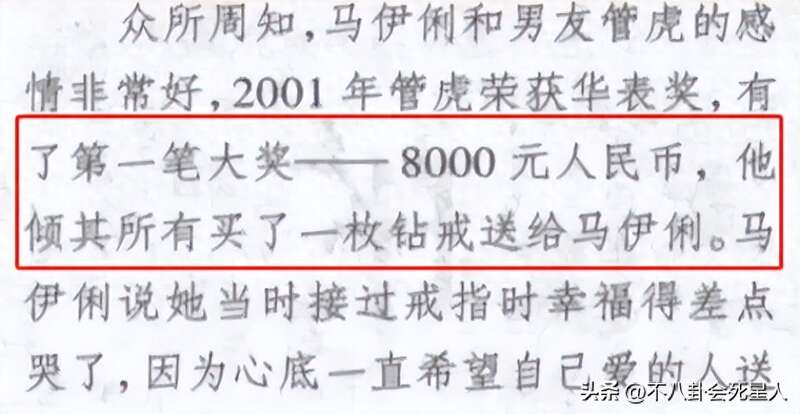 众所周知,马伊俐和男友管虎的感
情非常好,2001年管虎荣获华表奖,有
了第一笔大奖——8000元人民币,他
倾其所有买了一枚钻戒送给马伊俐。马
伊俐说她当时接过戒指时幸福得差点
哭了,因为心底一直希望自己爱的人送
头条 @不八卦会死星人